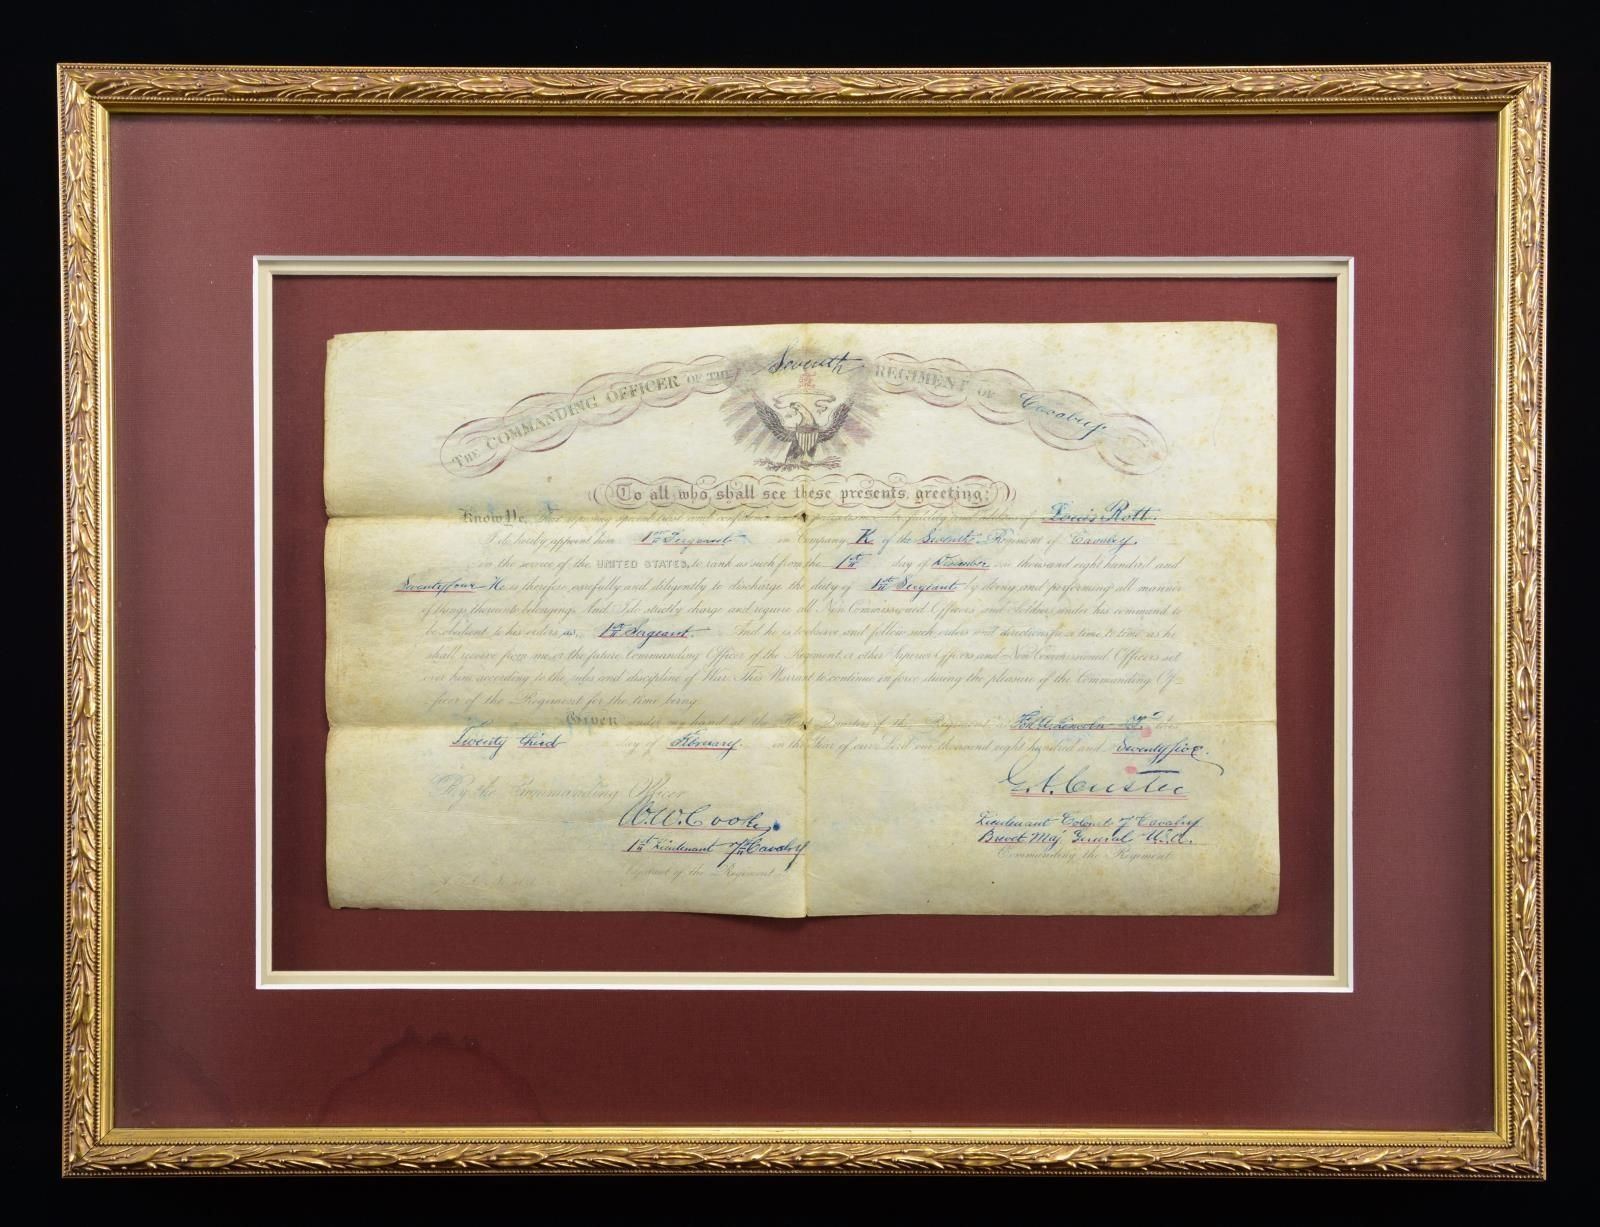 THE COMMANDING OFFICER OF THE Seventh REGIMENT OF Cavalry
To all who shall see these presents, greeting:
Know Ye, That reposing special trust and confidence in the patriotism, valor, fidelity and abilities of Louis Rott.
I do hereby appoint him 1st Sergeant in Company K of the Seventh Regiment of Cavalry
in the service of the UNITED STATES, to rank as such from the 1st day of December one thousand eight hundred and
Seventy four He is therefore, carefully and diligently to discharge the duty of 1st Sergeant by doing and performing all manner
of things thereunto belonging. And I do strictly charge and require all Non Commissioned Officers and Soldiers under his command to
be obedient to his orders as 1st Sergeant. And he is to observe and follow such orders and directions from time to time, as he
shall receive from me, or the future Commanding Officer of the Regiment, or other Superior Officers and Non Commissioned Officers set
over him, according to the rules and discipline of War. This Warrant to continue in force during the pleasure of the Commanding Of-
ficer of the Regiment for the time being.
Given under my hand at the Head Quarters of the Regiment at Fort A. Lincoln D.T. this
Twenty third day of February in the Year of our Lord one thousand eight hundred and Seventy five.
By the Commanding Officer
G. A. Custer
W. W. Cooke
Lieutenant Colonel 7 Cavalry
1st Lieutenant 7th Cavalry
Brevet Maj. General U.S.A.
Commanding the Regiment
Adjutant of the Regiment